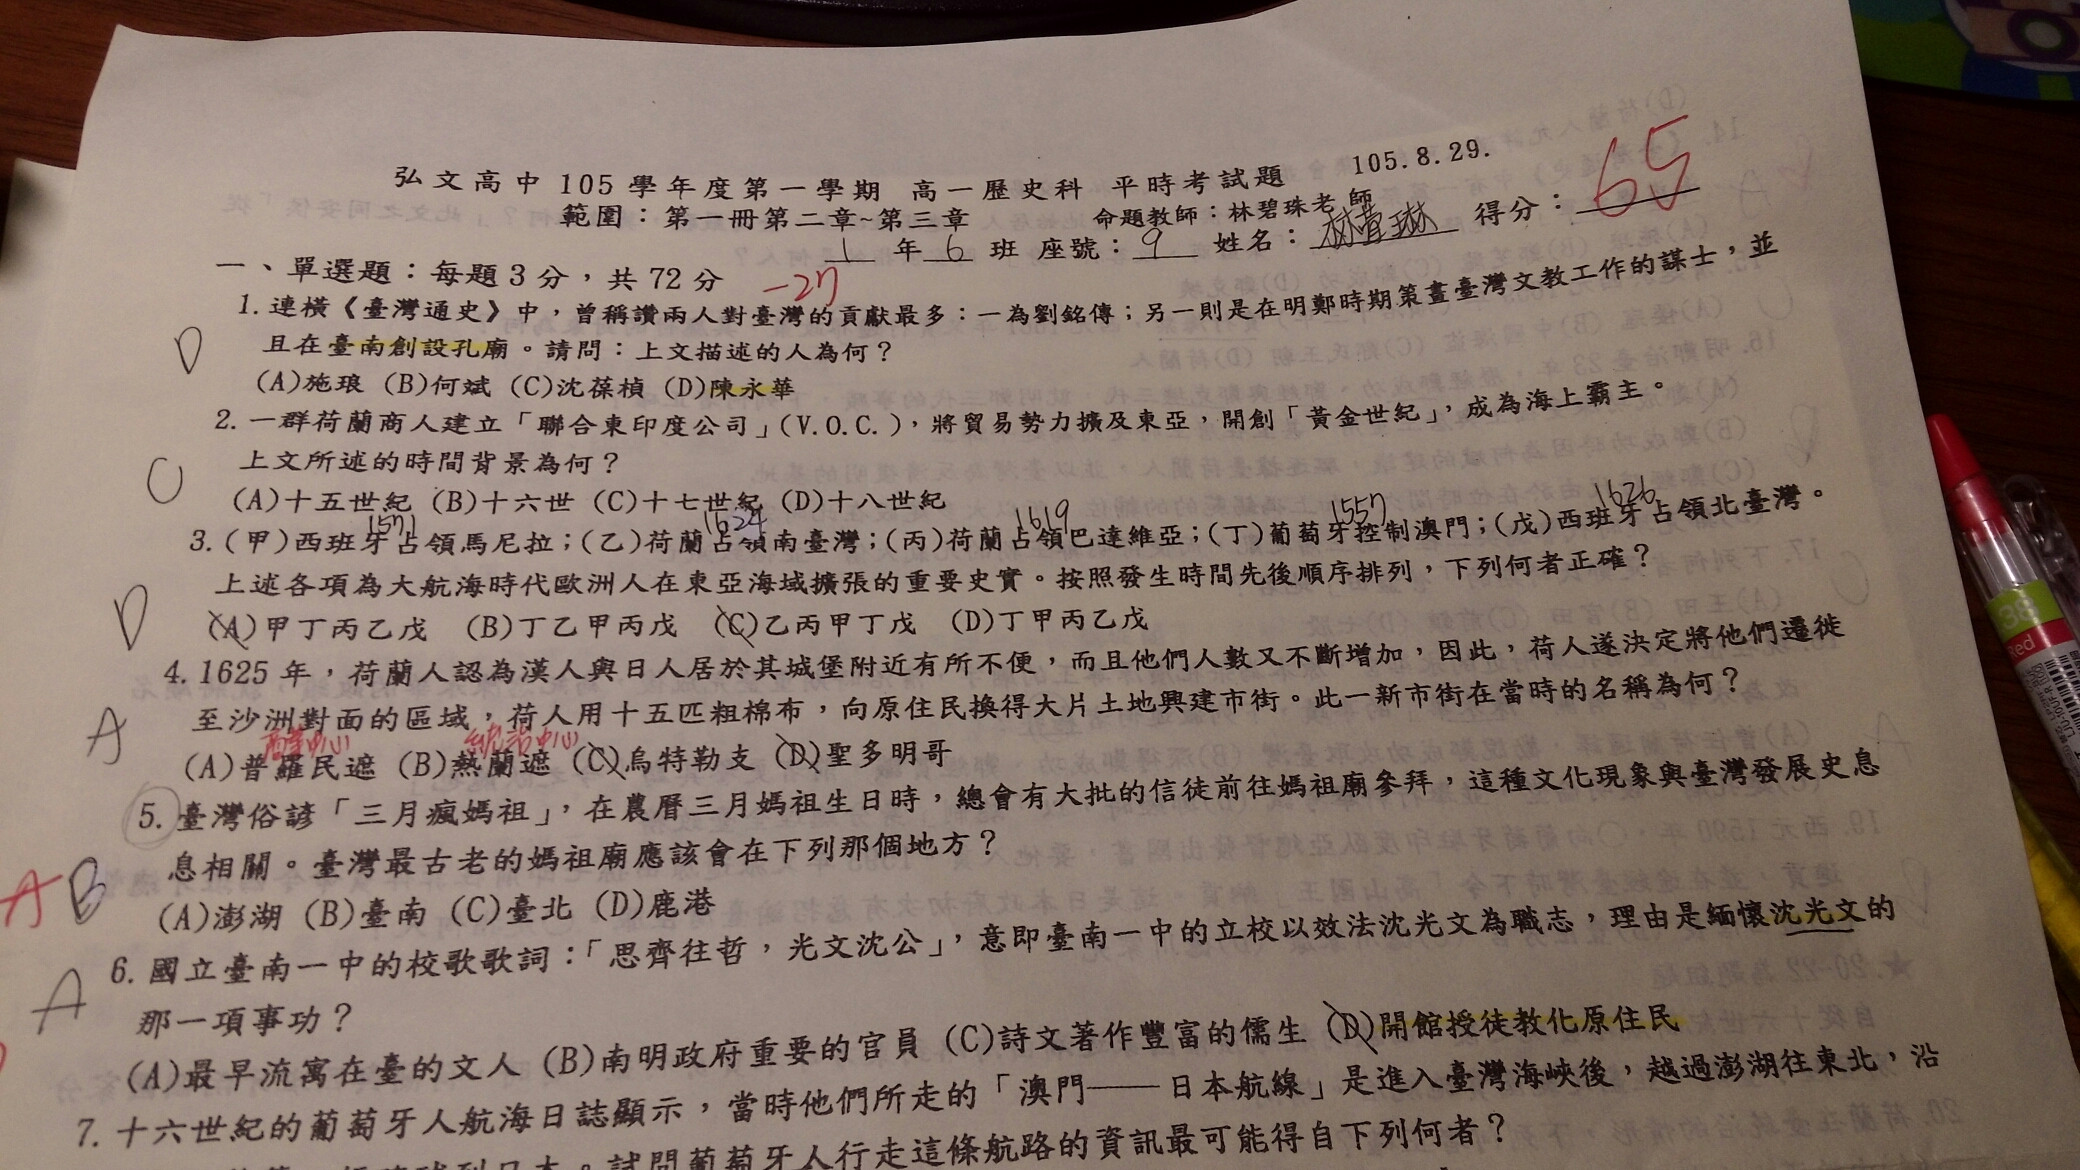 弘文高中105學年度第一學期 高一歷史科 平時考試題 105.8.29.
範圍：第一冊第二章~第三章 命題教師：林碧珠老師
1 年 6 班 座號：9 姓名：林 琳 得分：65
一、單選題：每題3分，共72分 -27
1.連橫《臺灣通史》中，曾稱讚兩人對臺灣的貢獻最多：一為劉銘傳；另一則是在明鄭時期策畫臺灣文教工作的謀士，並
D 且在臺南創設孔廟。請問：上文描述的人為何？
(A)施琅 (B)何斌 (C)沈葆楨 (D)陳永華
2.一群荷蘭商人建立「聯合東印度公司」(V.O.C.)，將貿易勢力擴及東亞，開創「黃金世紀」，成為海上霸主。
C 上文所述的時間背景為何？
(A)十五世紀 (B)十六世 (C)十七世紀 (D)十八世紀
1571 1624 1619 1557 1626
3.(甲)西班牙占領馬尼拉；(乙)荷蘭占領南臺灣；(丙)荷蘭占領巴達維亞；(丁)葡萄牙控制澳門；(戊)西班牙占領北臺灣。
上述各項為大航海時代歐洲人在東亞海域擴張的重要史實。按照發生時間先後順序排列，下列何者正確？
D (A)甲丁丙乙戊 (B)丁乙甲丙戊 (C)乙丙甲丁戊 (D)丁甲丙乙戊
4.1625年，荷蘭人認為漢人與日人居於其城堡附近有所不便，而且他們人數又不斷增加，因此，荷人遂決定將他們遷徙
至沙洲對面的區域，荷人用十五匹粗棉布，向原住民換得大片土地興建市街。此一新市街在當時的名稱為何？
商業中心 統治中心
A (A)普羅民遮 (B)熱蘭遮 (C)烏特勒支 (D)聖多明哥
5.臺灣俗諺「三月瘋媽祖」，在農曆三月媽祖生日時，總會有大批的信徒前往媽祖廟參拜，這種文化現象與臺灣發展史息
息相關。臺灣最古老的媽祖廟應該會在下列那個地方？
A B (A)澎湖 (B)臺南 (C)臺北 (D)鹿港
6.國立臺南一中的校歌歌詞：「思齊往哲，光文沈公」，意即臺南一中的立校以效法沈光文為職志，理由是緬懷沈光文的
A 那一項事功？
(A)最早流寓在臺的文人 (B)南明政府重要的官員 (C)詩文著作豐富的儒生 (D)開館授徒教化原住民
7.十六世紀的葡萄牙人航海日誌顯示，當時他們所走的「澳門——日本航線」是進入臺灣海峽後，越過澎湖往東北，沿
到日本。試問葡萄牙人行走這條航路的資訊最可能得自下列何者？
38
Red